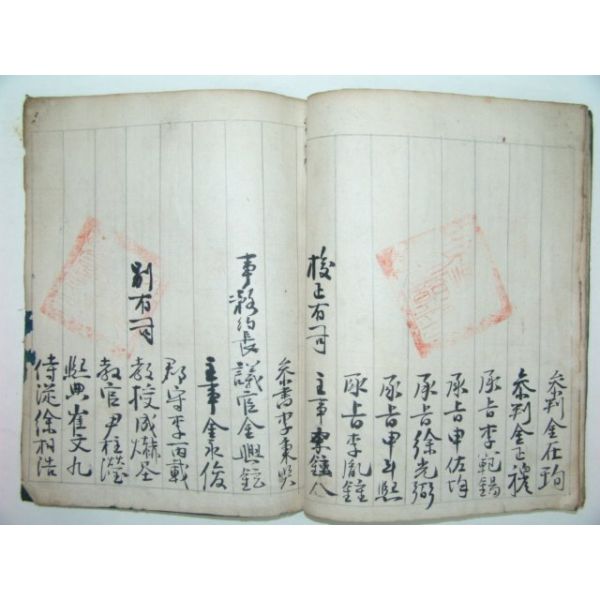 參判 金在珣
參判 金正穆
承旨 李範錫
承旨 申佐均
承旨 徐光弼
承旨 申斗熙
承旨 李胤鍾
校正有司 主事
參書 李東興
事務約長 議官 金興
主事 金永俊
郡守 李丙載
別有司 教授 成 圣
教官 尹柱瀅
熙典 崔文九
侍從 徐相浩